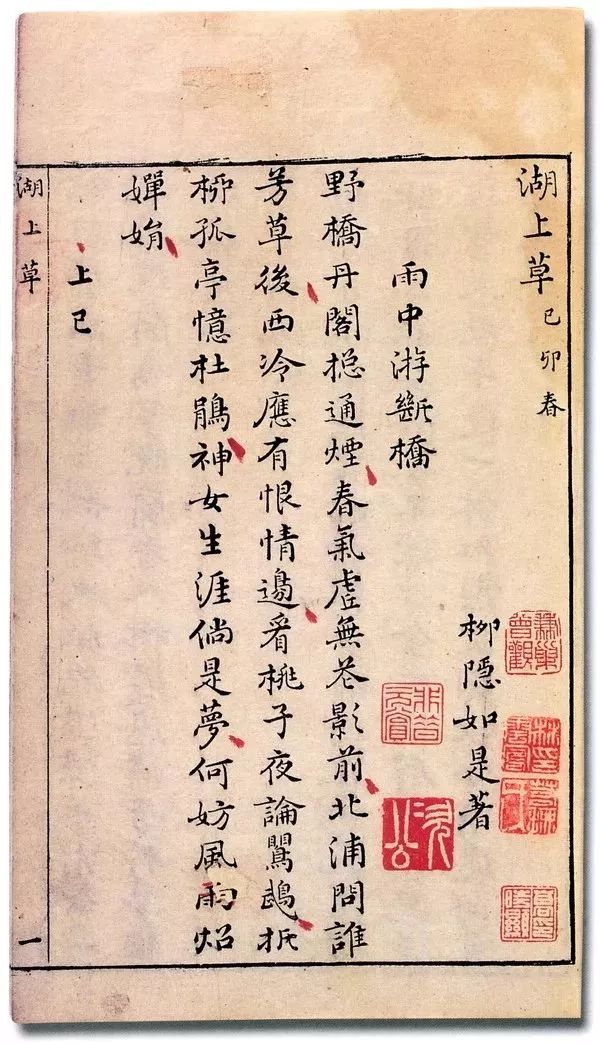 湖上草己卯春
柳隱如是著
雨中游斷橋
野橋丹閣揔通煙春氣虛無花影前北浦問誰
芳草後西泠應有恨情邊看桃子夜論鸎鵡折
柳孤亭憶杜鵑神女生涯倘是夢何妨風雨炤
嬋娟
上巳
湖上草
一